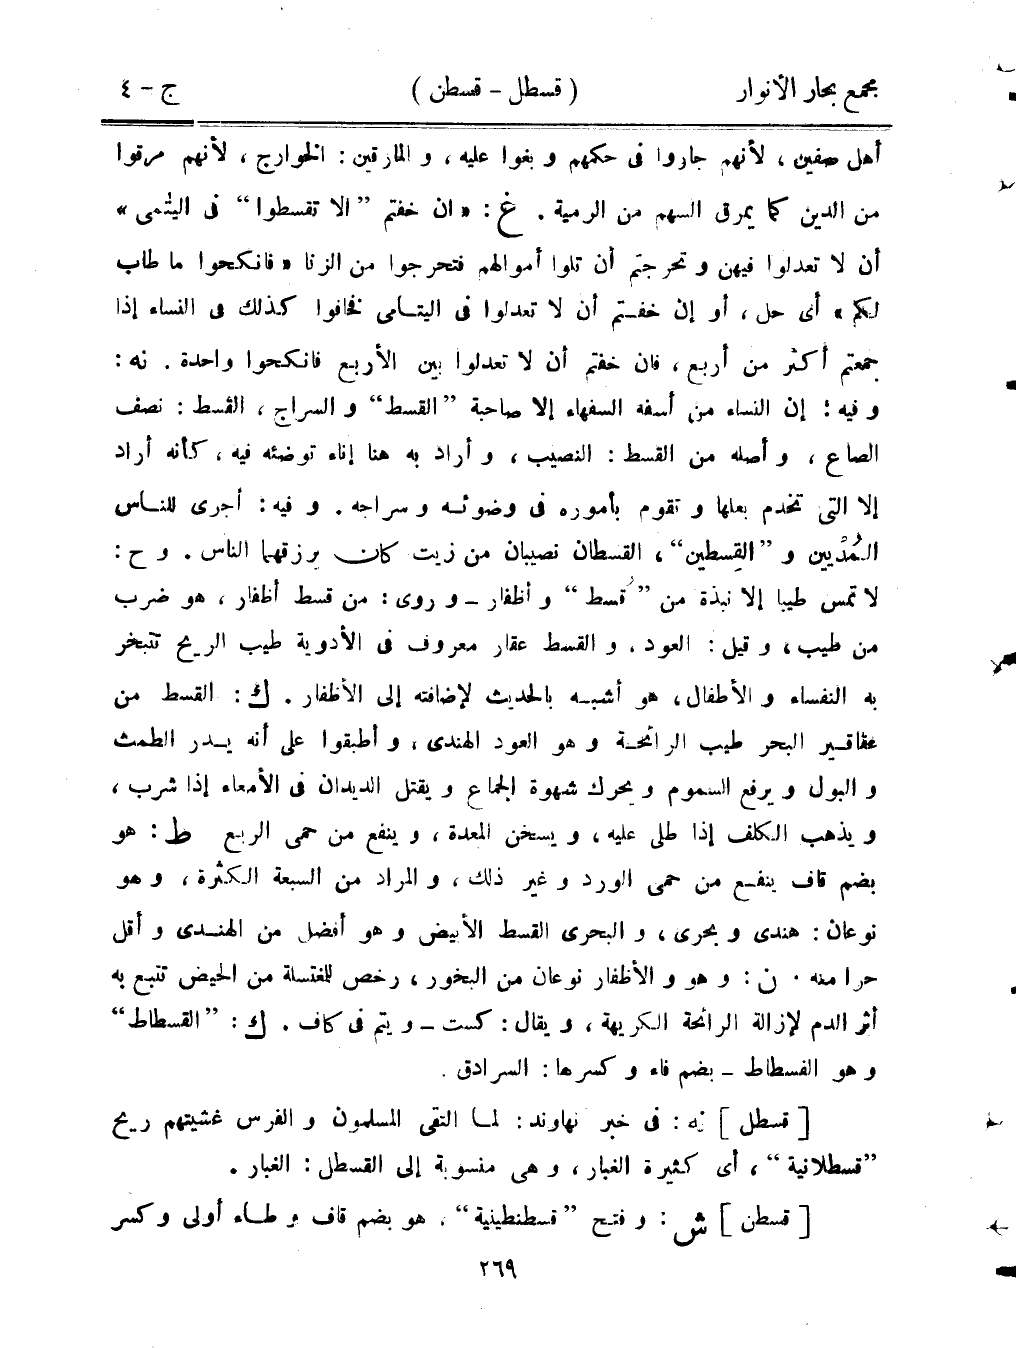 مجمع بحار الأنوار ( قسطل - قسطن ) ج - ٤
أهل صفين ، لأنهم جاروا فى حكمهم و بغوا عليه ، و المارقين : الخوارج ، لأنهم مرقوا
من الدين كما يمرق السهم من الرمية . غ : « ان خفتم ”الا تقسطوا“ فى اليتٰمى »
أن لا تعدلوا فيهن و تحرجتم أن تلوا أموالهم فتحرجوا من الزنا « فانكحوا ما طاب
لكم » أى حل ، أو إن خفتم أن لا تعدلوا فى اليتامى فخافوا كذلك فى النساء إذا
جمعتم أكثر من أربع ، فان خفتم أن لا تعدلوا بين الأربع فانكحوا واحدة . نه :
و فيه : إن النساء من أسفه السفهاء إلا صاحبة ”القسط“ و السراج ، القسط : نصف
الصاع ، و أصله من القسط : النصيب ، و أراد به هنا إناء توضئه فيه ، كأنه أراد
إلا التى تخدم بعلها و تقوم بأموره فى وضوئه و سراجه . و فيه : أجرى للناس
المُدْيين و ”القِسطين“ ، القسطان نصيبان من زيت كان يرزقهما الناس . و ح :
لا تمس طيبا إلا نبذة من ”قُسط“ و أظفار ــ و روى : من قسط أظفار ، هو ضرب
من طيب ، و قيل : العود . و القسط عقار معروف فى الأدوية طيب الريح تتبخر
به النفساء و الأطفال ، هو أشبه بالحديث لإضافته إلى الأظفار . ك : القسط من
عقاقير البحر طيب الرائحة و هو العود الهندى ، و أطبقوا على أنه يدر الطمث
و البول و يرفع السموم و يحرك شهوة الجماع و يقتل الديدان فى الأمعاء إذا شرب ،
و يذهب الكلف إذا طلى عليه ، و يسخن المعدة ، و ينفع من حمى الربع ط : هو
بضم قاف ينفع من حمى الورد و غير ذلك ، و المراد من السبعة الكثرة ، و هو
نوعان : هندى و بحرى ، و البحرى القسط الأبيض و هو أفضل من الهندى و أقل
حرا منه . ن : و هو و الأظفار نوعان من البخور ، رخص للمغتسلة من الحيض تتبع به
أثر الدم لإزالة الرائحة الكريهة ، و يقال : كست ــ و يتم فى كاف . ك : ”القسطاط“
و هو الفسطاط ــ بضم فاء و كسرها : السرادق .
[ قسطل ] نه : فى خبر نهاوند : لما التقى المسلمون و الفرس غشيتهم ريح
”قسطلانية“ ، أى كثيرة الغبار ، و هى منسوبة إلى القسطل : الغبار .
[ قسطن ] ش : و فتح ”قسطنطينية“ ، هو بضم قاف و طاء أولى و كسر
٢٦٩